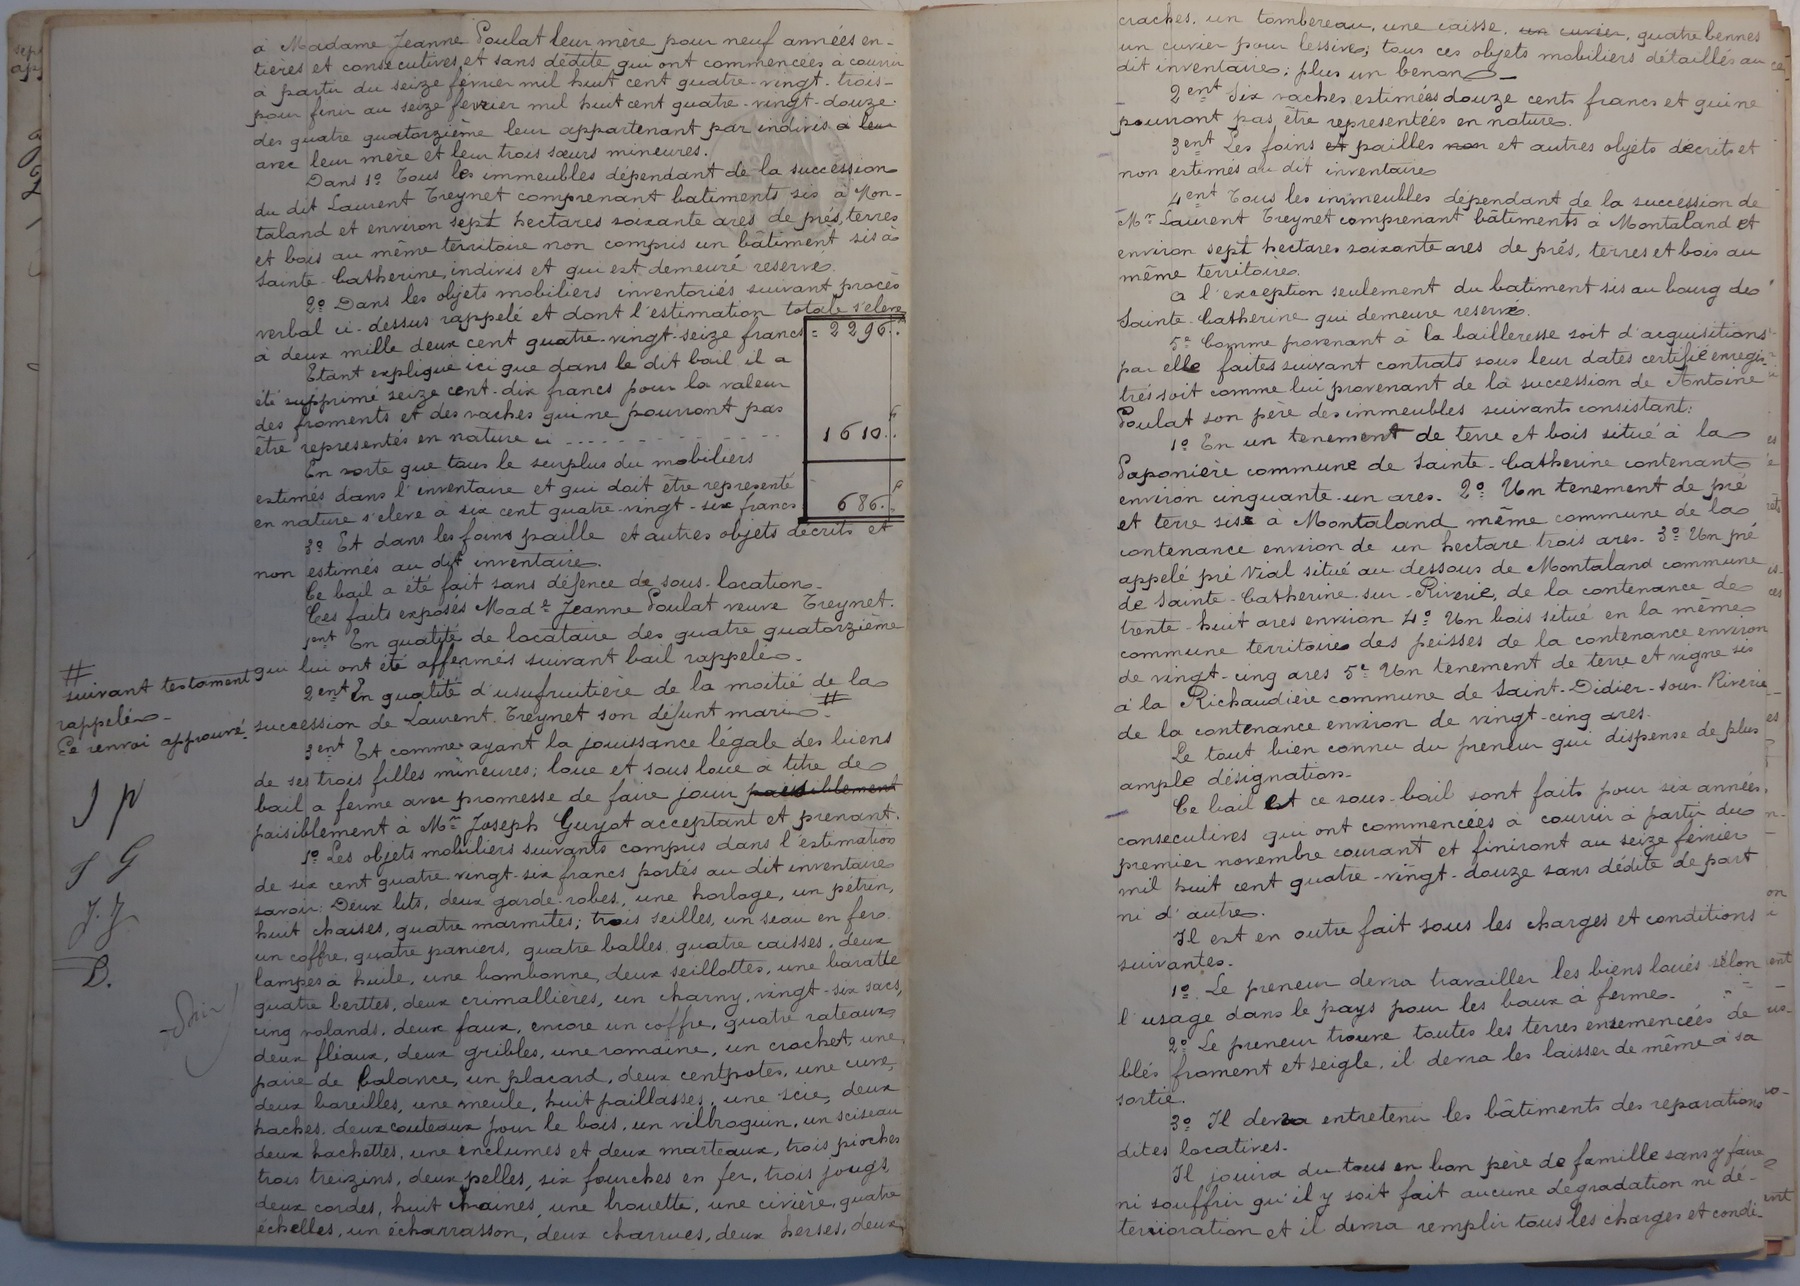 à Madame Jeanne Poulat leur mère pour neuf années en-
tières et consécutives, et sans dédite qui ont commencées à courrir
à partir du seize février mil huit cent quatre-vingt-trois-
pour finir au seize février mil huit cent quatre-vingt-douze.
des quatre quatorzième leur appartenant par indivis à leur
avec leur mère et leur trois sœurs mineures.
Dans 1º Tous les immeubles dépendant de la succession
du dit Laurent Treynet comprenant batiments sis à Mon-
taland et environ sept hectares soixante ares de prés, terres
et bois au même territoire non compris un bâtiment sis à
Sainte-Catherine, indivis et qui est demeuré reservé.
2º Dans les objets mobiliers inventoriés suivant procès
verbal ci-dessus rappelé et dont l'estimation totale s'elève
à deux mille deux cent quatre-vingt-seize francs = 2296.
Etant expliqué ici que dans le dit bail il a
été supprimé seize cent-dix francs pour la valeur
des froments et des vaches qui ne pourront pas
être representés en nature ci - - - - - - - 1610.
En sorte que tous le surplus du mobiliers
estimés dans l'inventaire et qui doit être representé
en nature s'eleve à six cent quatre-vingt-six francs 686.
3º Et dans les foins paille et autres objets décrits et
non estimés au dit inventaire.
Ce bail a été fait sans défence de sous-location.
Ces faits exposés Made Jeanne Poulat veuve Treynet.
1ent En qualité de locataire des quatre quatorzième
qui lui ont été affermés suivant bail rappelé.
2ent En qualité d'usufruitière de la moitié de la
succession de Laurent Treynet son défunt mari #
3ent Et comme ayant la jouissance légale des biens
de ses trois filles mineures; loue et sous loue à titre de
bail a ferme avec promesse de faire jouir paisiblement
paisiblement à Mr Joseph Guyot acceptant et prenant.
1º Les objets mobiliers suivants compris dans l'estimation
de six cent quatre vingt-six francs portés au dit inventaire
savoir: Deux lits, deux garde-robes, une horloge, un pétrin,
huit chaises, quatre marmites; trois seilles, un seau en fer.
un coffre, quatre paniers, quatre balles, quatre caisses, deux
lampes à huile, une bombonne, deux seillottes, une baratte
quatre berttes, deux crimallières, un charny, vingt-six sacs,
cinq volands, deux faux, encore un coffre, quatre rateaux
deux fléaux, deux gribles, une romaine, un crochet, une
paire de balance, un placard, deux centpotes, une cuve,
deux bareilles, une meule, huit paillasses, une scie, deux
haches, deux couteaux pour le bois, un villbroquin, un sciseau
deux hachettes, une enclumes et deux marteaux, trois pioches
trois treizins, deux pelles, six fourches en fer, trois jougs
deux cordes, huit chaines, une brouette, une civière, quatre
échelles, un écharrasson, deux charrues, deux herses, deux
#
suivant testament
rappelé.
Ce renvoi approuvé.
J P
J G
J. J
B.
craches, un tombereau, une caisse, un cuvier, quatre bennes
un cuvier pour lessive; tous ces objets mobiliers détaillés au
dit inventaire; plus un benon
2ent Six vaches estimées douze cents francs et qui ne
pourront pas être representées en nature.
3ent Les foins et pailles non et autres objets décrits et
non estimés au dit inventaire
4ent Tous les immeubles dépendant de la succession de
Mr Laurent Treynet comprenant bâtiments à Montaland et
environ sept hectares soixante ares de prés, terres et bois au
même territoire.
A l'exception seulement du batiment sis au bourg de
Sainte-Catherine qui demeure reservé.
5º Comme provenant à la bailleresse soit d'acquisitions
par elle faites suivant contrats sous leur dates certifié enregis-
trés soit comme lui provenant de la succession de Antoine
Poulat son père des immeubles suivants consistant:
1º En un tenement de terre et bois situé à la
Paponière commune de Sainte-Catherine contenant
environ cinquante-un ares. 2º Un tenement de pré
et terre sise à Montaland même commune de la
contenance environ de un hectare trois ares. 3º Un pré
appelé pré Vial situé au dessous de Montaland commune
de Sainte-Catherine-sur-Riverie, de la contenance de
trente-huit ares environ 4º Un bois situé en la même
commune territoire des peisses de la contenance environ
de vingt-cinq ares 5º Un tenement de terre et vigne sis
à la Richaudière commune de Saint-Didier-sous-Riverie
de la contenance environ de vingt-cinq ares.
Le tout bien connu du preneur qui dispense de plus
ample désignation.
Ce bail et ce sous-bail sont faits pour six années
consecutives qui ont commencées à courrir à partir du
premier novembre courant et finiront au seize février
mil huit cent quatre-vingt-douze sans dédite de part
ni d'autre.
Il est en outre fait sous les charges et conditions
suivantes.
1º Le preneur devra travailler les biens loués selon
l'usage dans le pays pour les baux à ferme.
2º Le preneur trouve toutes les terres ensemencées de
blés froment et seigle, il devra les laisser de même à sa
sortie.
3º Il devra entretenir les bâtiments des reparations
dites locatives.
Il jouira du tous en bon père de famille sans y faire
ni souffrir qu'il y soit fait aucune dégradation ni dé-
terrioration et il devra remplir tous les charges et condi-